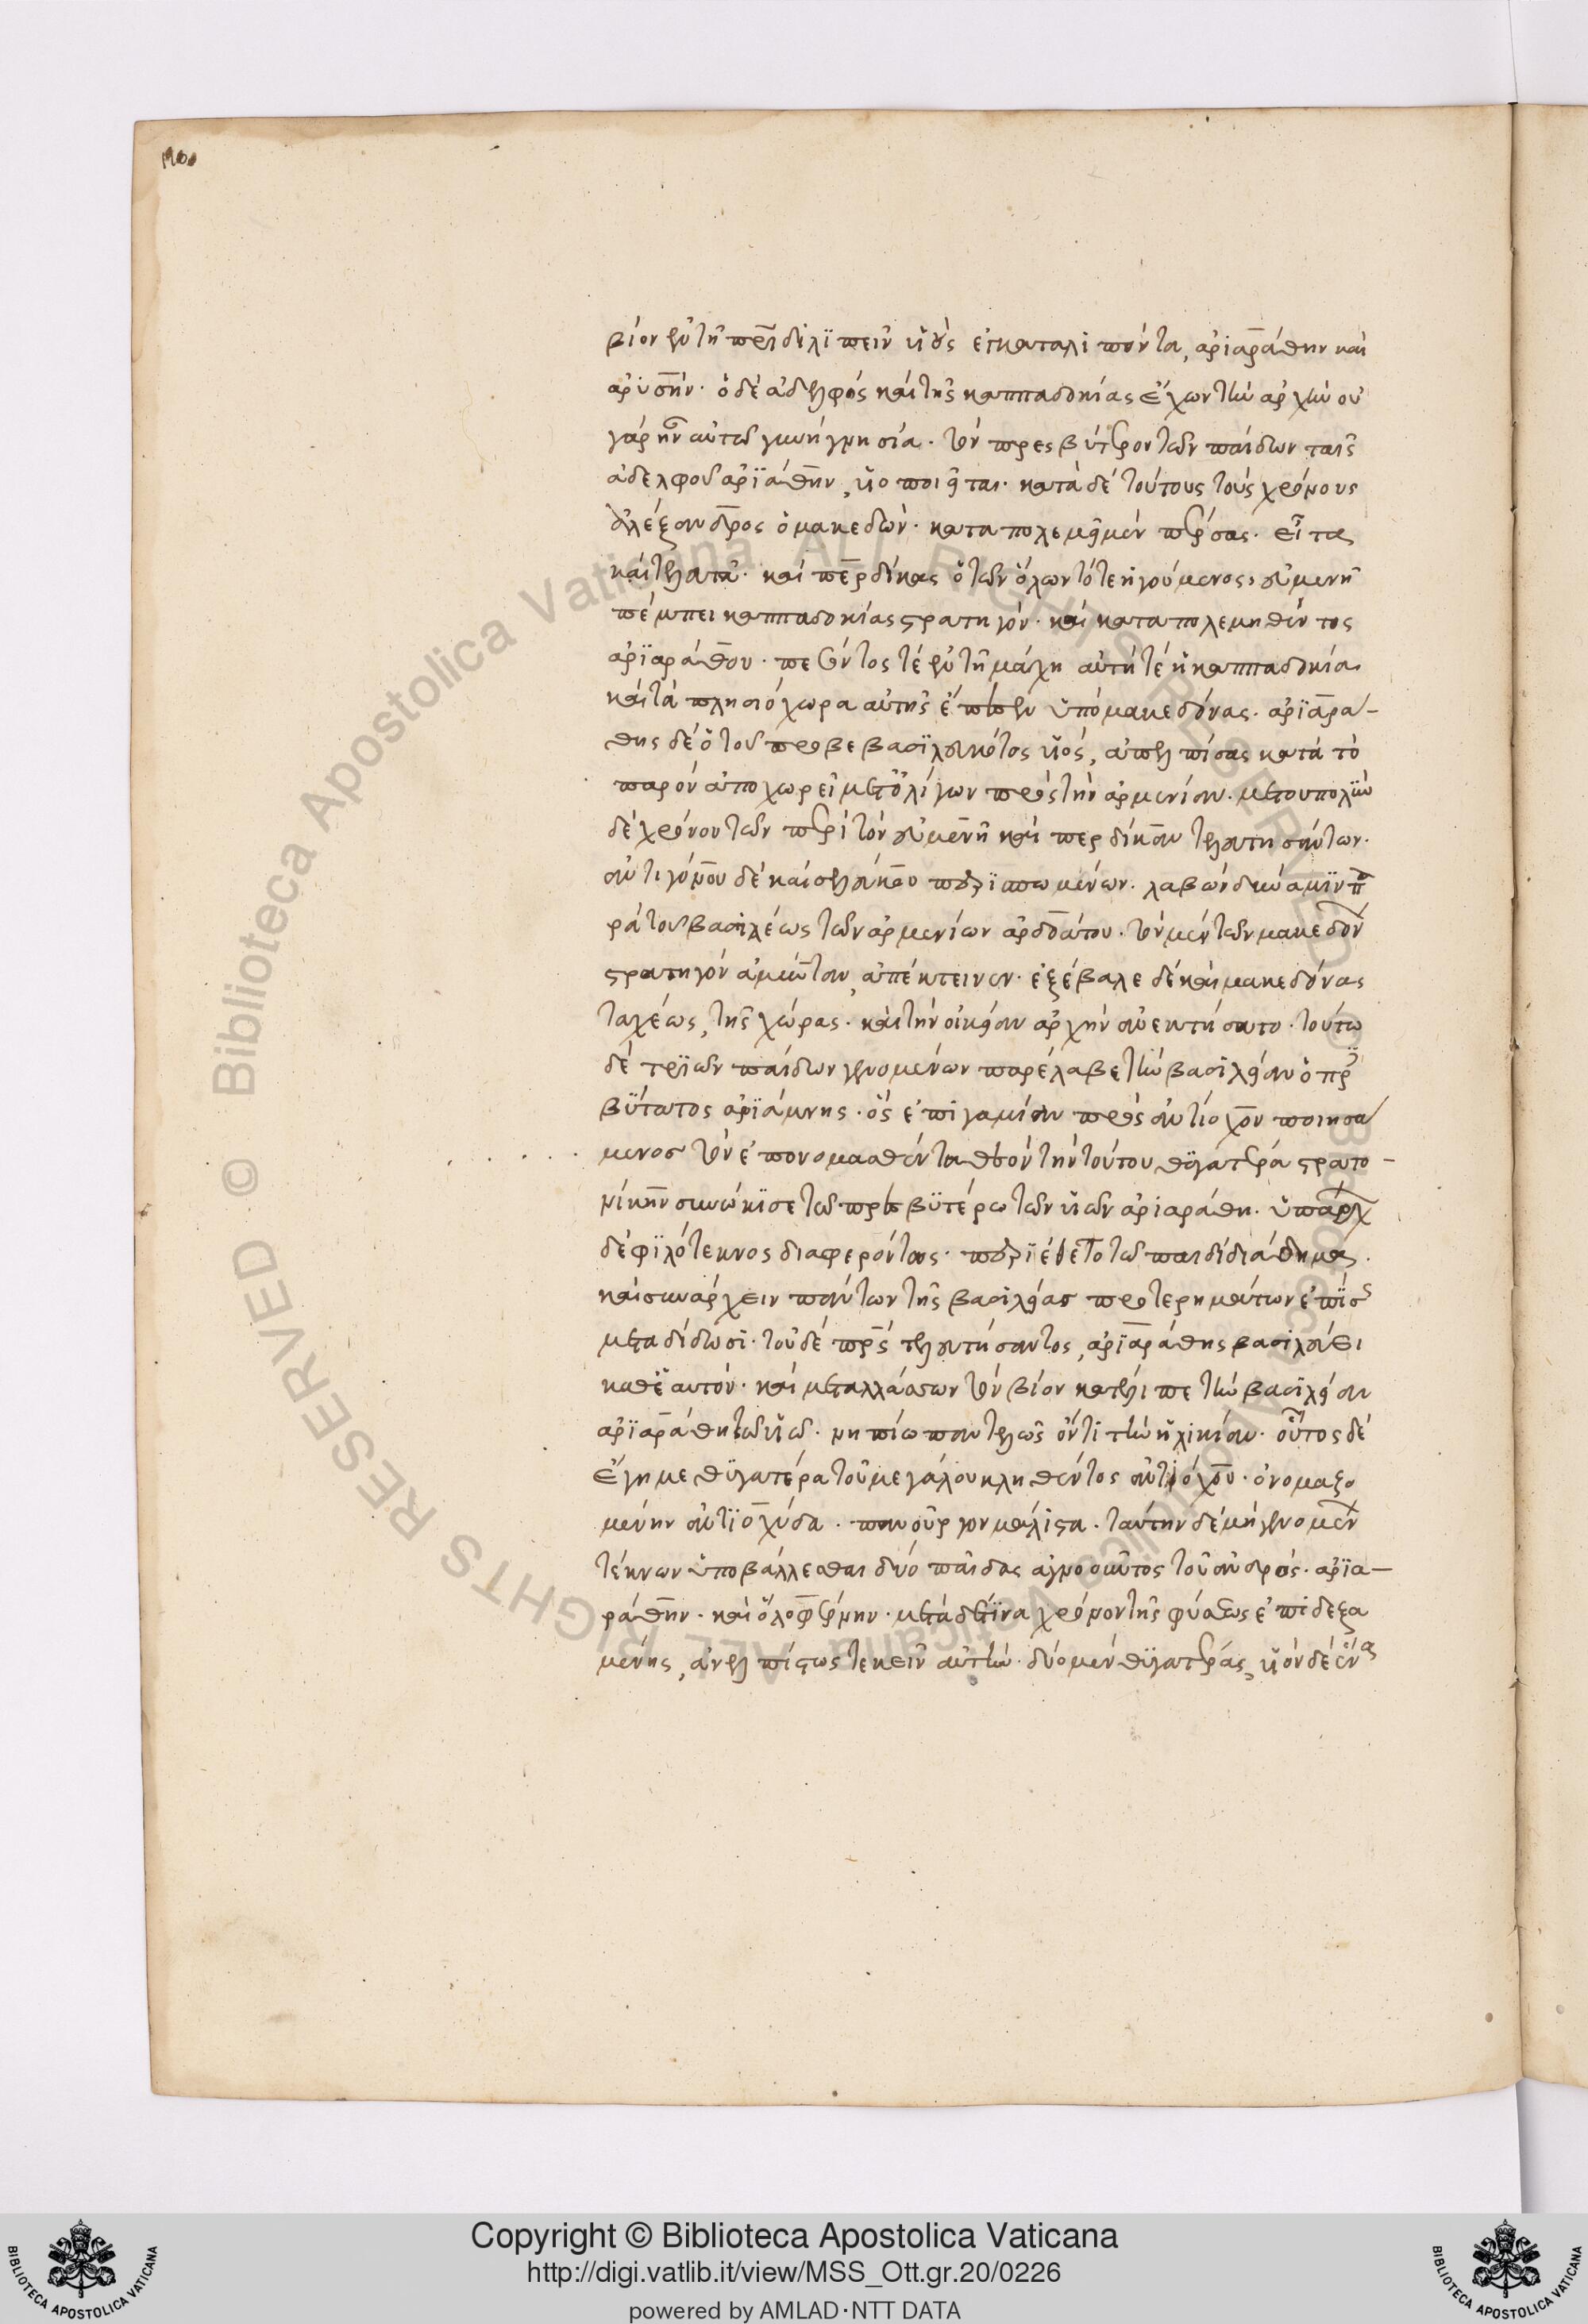 βίον ἐν τῇ περιδι λϊπεῖν υἱοὺς ἐγκαταλιπόντα, ἀριαράθην καὶ
ἀρύσην. ὁ δὲ ἀδελφὸς καὶ τῆς καππαδοκίας ἔχων τὴν ἀρχὴν οὐ
γὰρ ἦν αὐτῶ γονὴ γνησία. τὸν πρεσβύτερον τῶν παίδων
ἀδελφοῦ υἱοποιεῖται. κατὰ δὲ τούτους τοὺς χρόνους
ἀλέξανδρος ὁ μακεδὼν. καταπολεμεῖ μὲν πέρσας. εἶτα
καὶ τελευτᾶ. καὶ περδίκας ὁ τῶν ὅλων τότε ἡγούμενος, εὐμενῆ
πέμπει καππαδοκίας στρατηγόν. καὶ καταπολεμηθέντος
ἀρϊαράθου. πεσόντος τὲ ἐν τῇ μάχη αὐτή τέ ἡ καππαδοκία
καὶ τὰ πλησιόχωρα αὐτῆς ἔπεσεν ὑπὸ μακεδόνας. ἀρϊαρά-
θης δὲ ὁ τοῦ προβεβασϊλευκότος υἱός, ἀπελπίσας κατὰ τὸ
παρὸν ἀποχωρεῖ μετ' ὀλίγων πρὸς τὴν ἀρμενίαν. μετ' οὐ πολὺν
δὲ χρόνον τῶν περὶ τὸν εὐμενῆ καὶ περδίκαν τελευτησάντων.
ἀντιγόνου δὲ καὶ σελεύκου περϊσπωμένων. λαβὼν δύναμϊν πα
ρὰ τοῦ βασιλέως τῶν ἀρμενίων ἀρδοάτου. τὸν μὲν τῶν μακεδόν
στρατηγὸν ἀμύνταν, ἀπέκτεινεν. ἐξέβαλε δὲ καὶ μακεδόνας
ταχέως, τῆς χώρας. καὶ τὴν οἰκείαν ἀρχὴν ἀνεκτήσατο. τούτω
δὲ τρϊῶν παίδων γενομένων παρέλαβε τὴν βασϊλείαν ὁ πρεσ
βύτατος ἀρϊάμνης. ὃς ἐπιγαμίαν πρὸς ἀντίοχον ποιησα
μενος τὸν ἐπονομασθέντα θεὸν τὴν τούτου θυγατέρα στρατο-
νίκην συνώκϊσε τῶ πρεσβυτέρω τῶν υἱῶν ἀριαράθη. ὑπάρχ
δὲ φϊλότεκνος διαφερόντως. περϊέθετο τῶ παιδὶ διάδημα.
καὶ συνάρχειν πάντων τῆς βασιλείας προτερημάτων ἐπίσ
μεταδίδωσι. τοῦ δὲ πατρὸς τελευτήσαντος, ἀρϊαράθης βασιλεύει
καθ' ἑαυτόν. καὶ μεταλλάσσων τὸν βίον κατέλιπε τὴν βασϊλείαν
ἀρϊαράθη τῶ υἱῶ. νηπίω παντελῶς ὄντι τὴν ἡλικίαν. οὗτος δὲ
ἔγημε θυγατέρα τοῦ μεγάλου κληθέντος ἀντιόχου. ὀνομαζο
μένην ἀντϊοχίδα. πανοῦργον μάλιστα. ταύτην δὲ μὴ γενομέν
τέκνων ὑποβάλλεσθαι δύο παῖδας ἀγνοοῦντος τοῦ ἀνδρός. ἀρϊα-
ράθην. καὶ ὀλοφέρνην. μετὰ δέ τϊνα χρόνον τῆς φύσεως ἐπιδεξα
μένης, ἀνελπίστως τεκεῖν αὐτήν. δύο μὲν θυγατέρας, υἱὸν δὲ ἕνα